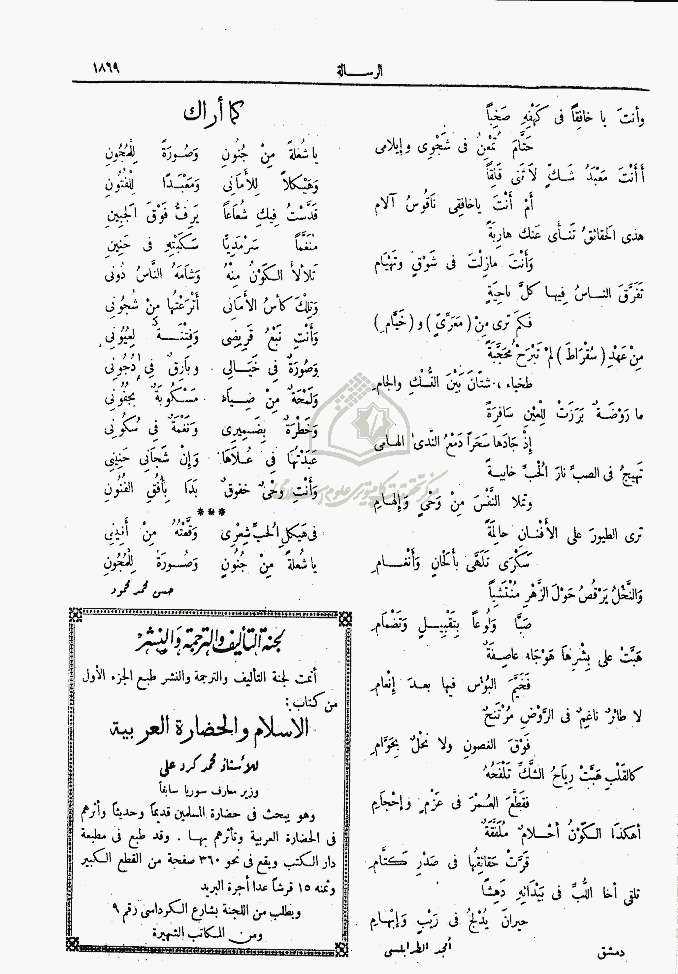 الرسالة
١٨٦٩
وأنتَ يا خافِقاً فى كَهْفِهِ صَخِباً
حَتَّامَ تُمْعِنُ فى شَجْوِى وإيلامى
أأنْتَ مَعْبَدُ شَكٍّ لا تَنى قَلِقاً
أمْ أنْتَ ياخافِقِى نَاقُوسُ آلامِ
هذى الحقائقُ تَنأى عنك هاربةً
وَأنْتَ مازِلْتَ فى شَوْقٍ وتَهْيَامِ
تَفَرَّقَ الناسُ فيها كلَّ ناحِيَةٍ
فكم ترى مِنْ (مَعَرِّىٍّ) و (خَيَّامِ)
مِنْ عَهْدِ (سُقْرَاطَ) لمْ تَبْرَحْ مُحَجَّبَةً
طخياء، شتَّانَ بَيْنَ الفُلْكِ والجامِ
ما رَوْضَةٌ بَرَزَتْ لِلعَيْنِ سَافِرَةً
إذْ جَادَهَا سَحَراً دَمْعُ النَّدى الهامى
تَهيجُ فى الصبِّ نارَ الحُبِّ خابيةً
وتملا النَّفْسَ مِنْ وَحْىٍ وإلهامِ
ترى الطيورَ على الأفْنانِ حالِمَةً
سَكْرَى تَلَهَّى بألحانٍ وَأنْغَامِ
وَالنَّحْلُ يَرْقُصُ حَوْلَ الزَّهْرِ مُنْتَشِياً
صَبًّا وَلُوعاً بِتَقْبِيلٍ وَتَضْمَامِ
هَبَّتْ على بِشْرِها هَوْجَاء عاصِفَةٌ
فَخَيَّمَ البُؤْس فيها بعدَ إنعامِ
لا طائرٌ ناغِمٌ فى الرَّوْضِ مُرْتَنِحٌ
فَوْقَ الغصونِ ولا نحْلٌ بِحَوَّامِ
كالقَلْبِ هَبَّتْ رِياحُ الشَّكِّ تَلْفَحُهُ
فقطَّعَ العُمْرَ فى عَزْمٍ وإحْجامِ
أهكذا الكَوْنُ أحْلامٌ مُلَفَّقَةٌ
قَرَّتْ حَقَائِقُها فى صَدْرِ كَتَّامِ
تلقى أخا اللُّبِّ فى بَيْدَائِهِ دَهِشاً
حيرانَ يُدْلِجُ فى رَيْبٍ وَإبْهامِ
دمشق أمجد الطرابلسى
كما أراك
يا شُعْلَةً مِنْ جُنُونِ وَصُورَةً لِلْمُجُونِ
وَهَيْكَلاً لِلْأَمَانِى وَمَعْبَدًا لِلْفُتُونِ
قَدَّسْتُ فِيكِ شُعَاعًا يَرِفُّ فَوْقَ الْجَبِينِ
مُنَغَّماً سَرْمَدِيًّا سَكَبْتِهِ فى حَنِينِ
تَلَألأَ الكَوْنُ مِنْهُ وَشَامَهُ النَّاسُ دُونِى
وَتِلْكَ كأسُ الأَمَانِى أَتْرَعْتُها مِنْ شُجُونِى
وَأَنْتِ نَبْعُ قَرِيضِى وَفِتْنَةٌ لِعُيُونِى
وَصُورَةٌ فِى خَيَالِى وبارِقٌ فِى دُجُونِى
وَلَمْحَةٌ مِنْ ضِيَاء مَسْكُوبَةٌ بجُفُونِى
وَخَطْرَةٌ بِضَمِيرِى وَنَغْمَةٌ فى سُكُونِى
عَبَدْتُها فى عُلَاهَا وَإنْ شَجَانِى حَنِينِى
وَأنْتِ وَحْىٌ خفُوقٌ بَدَا بِأُفُقِ الفُنُونِ
***
فى هَيْكلِ الحُبِّ شِعْرِى وَقَّعْتُهُ مِنْ أنِينِى
يا شُعلةً مِنْ جُنُونِ وَصُورَةً لِلْمُجُونِ
حسن محمد محمود
لجنة التأليف والترجمة والنشر
أتمت لجنة التأليف والترجمة والنشر طبع الجزء الأول
من كتاب:
الاسلام والحضارة العربية
للأستاذ محمد كرد على
وزير معارف سوريا سابقاً
وهو يبحث فى حضارة المسلمين قديماً وحديثاً وأثرهم
فى الحضارة العربية وتأثرهم بها. وقد طبع فى مطبعة
دار الكتب ويقع فى نحو ٣٦٠ صفحة من القطع الكبير
وثمنه ١٥ قرشاً عدا أجرة البريد
ويطلب من اللجنة بشارع الكرداسى رقم ٩
ومن المكاتب الشهيرة